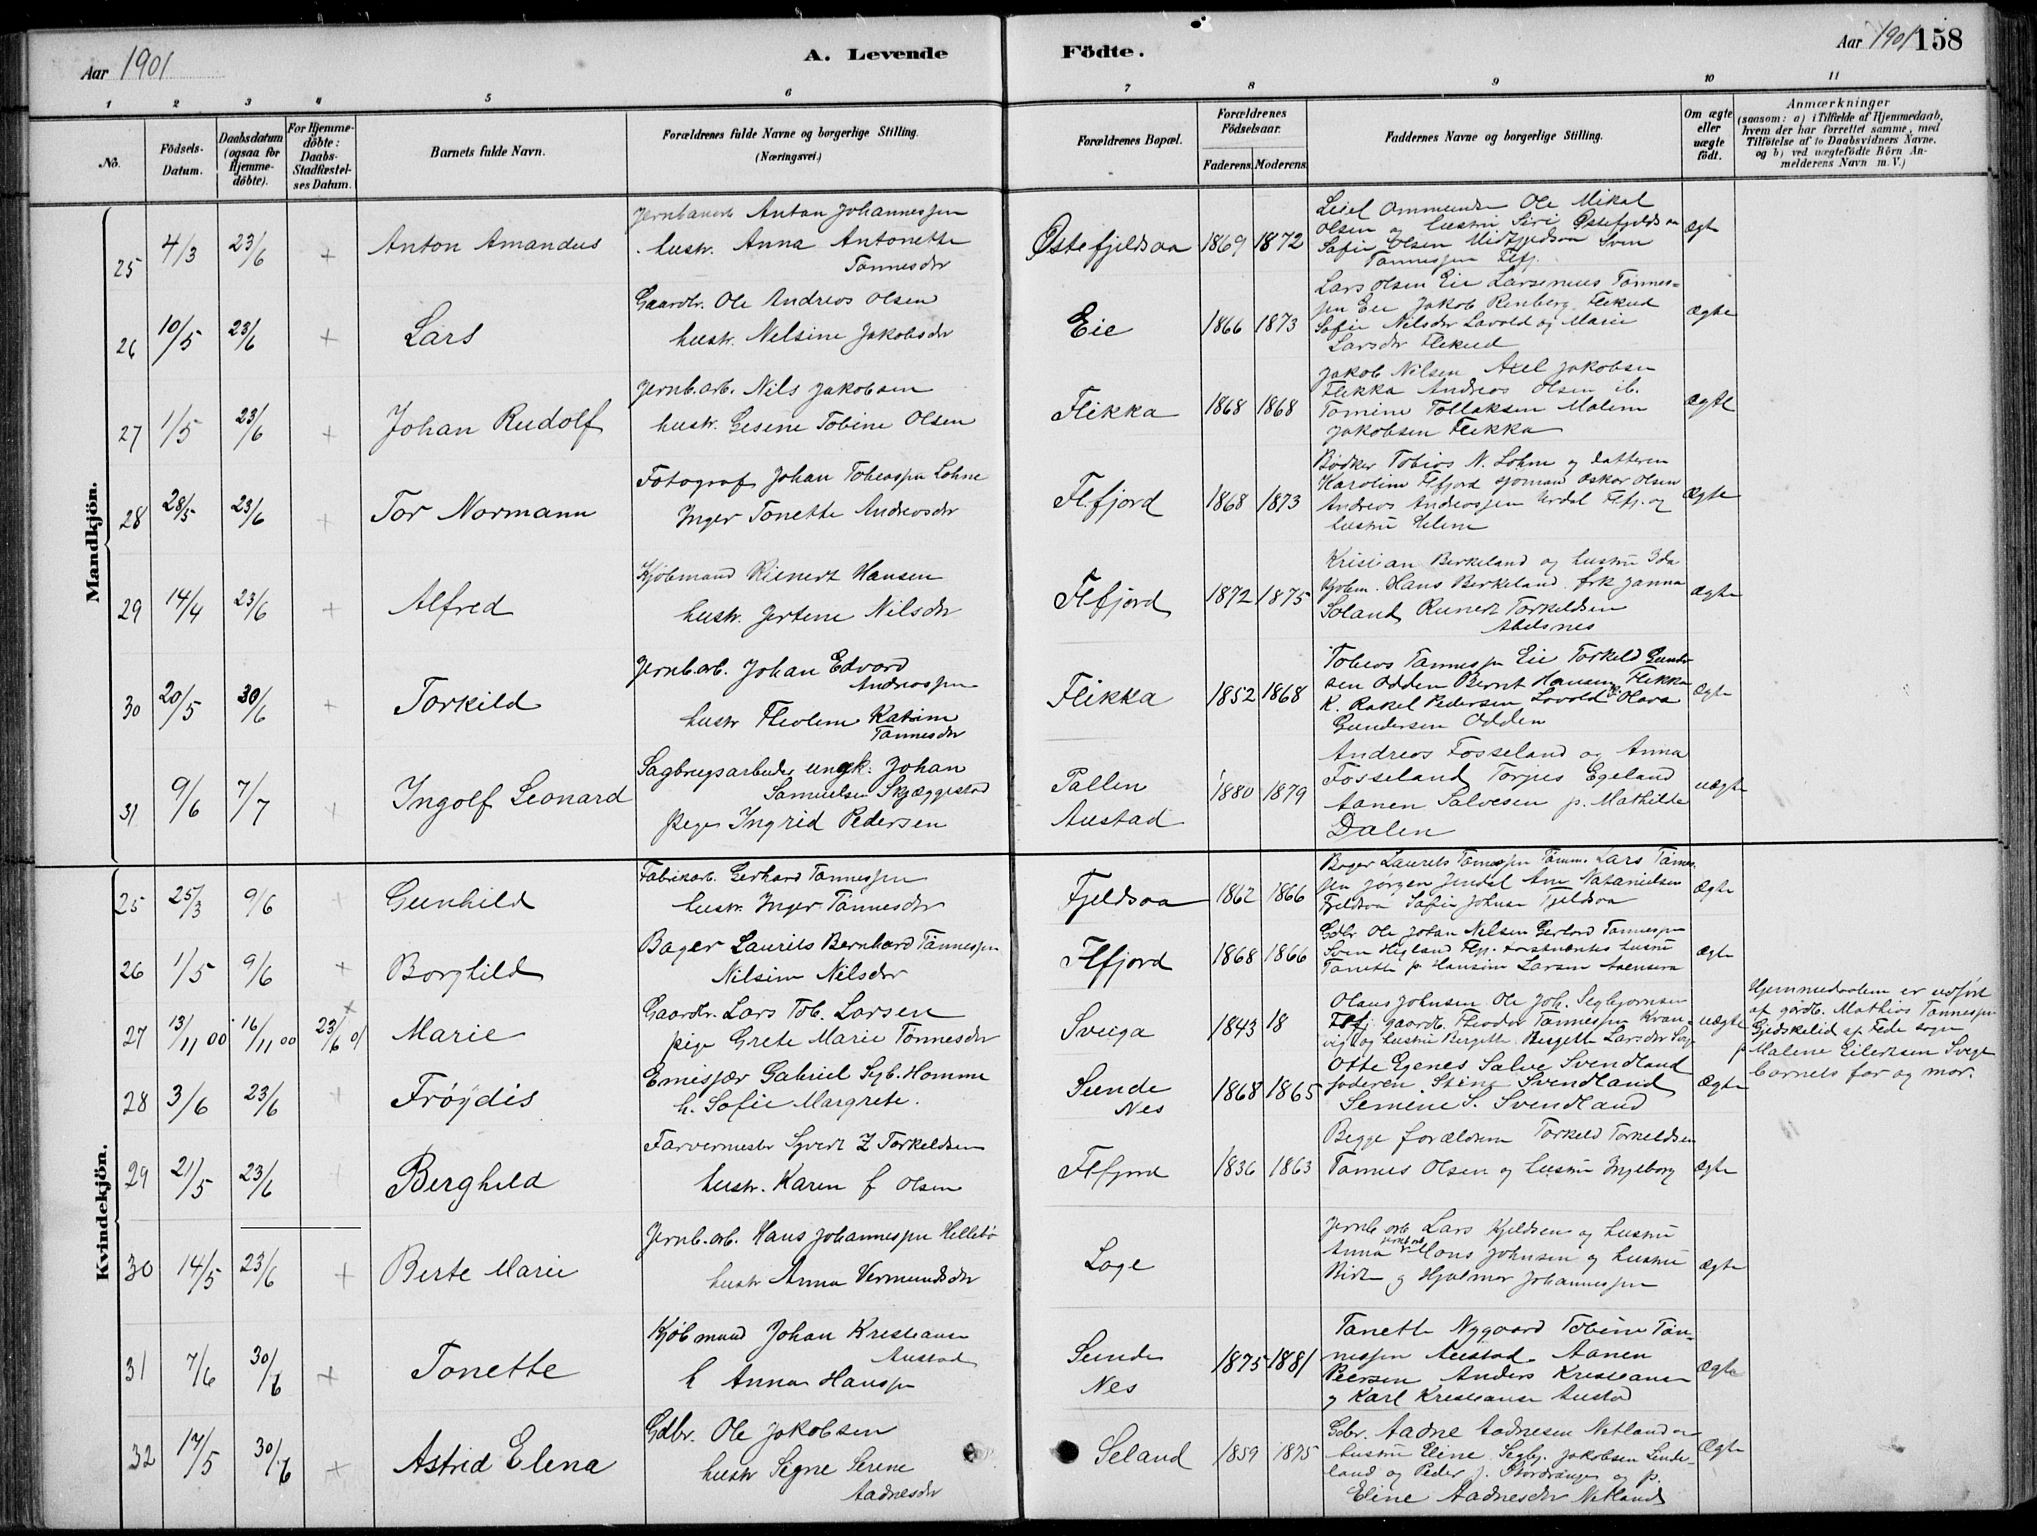 Aar 1901
A. Levende
Födte.
Aar 1901
158
1 2 3 4 5 6 7 8 9 10 11
No.
Födsels-Datum.
Daabsdatum (ogsaa for Hjemme-döbte).
For Hjemme-döbte: Daabs-Stadfæstel-ses Datum.
Barnets fulde Navn.
Forældrenes fulde Navne og borgerlige Stilling. (Næringsvei.)
Forældrenes Bopæl.
Forældrenes Födselsaar.
Faderens. Moderens.
Faddernes Navne og borgerlige Stilling.
Om ægte eller uægte födt.
Anmærkninger
(saasom: a) i Tilfælde af Hjemmedaab,
hvem der har forrettet samme, med
Tilföielse af to Daabsvidners Navne,
og b) ved uægtefödte Börn An-
melderens Navn m. V.)
Mandkjön.
25 4/3 23/6 + Anton Amandus
Jernbanearb Anton Johannessen
hustr. Anna Antonette
Tønnesdr
Østefjeldsaa 1869 1872
Leiel Ommundsen Ole Mikal
Olsen og hustru Siri Østefjeldsaa
Safie Olsen Midtfjeldsaa Sven
Tønnessen Flfj.
ægte
26 10/5 23/6 + Lars
Gaardbr. Ole Andreas Olsen
hustr. Nelsine Jakobsdr
Eie 1866 1873
Lars Olsen Eie Larsenius Tønnes-
sen Eie Jakob Renberg, Flikeid
Sofie Nilsdr Lavold og Marie
Larsdr Flikeid
ægte
27 1/5 23/6 + Johan Rudolf
Jernb.arb. Nils Jakobsen
hustr. Gesine Tobine Olsen
Flikka 1868 1868
Jakob Nilsen Axel Jakobsen
Flikka Andreas Olsen ib.
Tomine Tollaksen Malene
Jakobsen Flikka
ægte
28 28/5 23/6 + Tor Normann
Fotograf Johan Tobiassen Lohne
Inger Tonette Andreasdr
Flfjord 1868 1873
Bødker Tobias N. Lohne og datteren
Karoline Flfjord sjømand Oskar Olsen
Andreas Andreassen Urdal Flfj. og
hustru Helene
ægte
29 14/4 23/6 + Alfred
Kjøbmand Rienert Hansen
hustr. Jertine Nilsdr
Flfjord 1872 1875
Kristian Berkeland og hustru Ida
Kjøbm. Hans Berkeland, frk Janna
Soland, Reinert Torkeldsen
Abelsnes
ægte
30 20/5 30/6 + Torkild
Jernb.arb. Johan Edvard
Andreassen
hustr Theoline Katrine
Tønnesdr
Flikka 1852 1868
Tobias Tønnessen Eie Torkeld Gunder-
sen Odden Bernt Hansen, Flikka
K. Rakel Pedersen Lovold Olava
Gundersen Odden
ægte
31 9/6 7/7 + Ingolf Leonard
Sagbrugsarbeider ungk. Johan
Samuelsen Skjæggestad
pige Ingrid Pedersen
Pallen
Austad 1880 1879
Andreas Fosseland og Anna
Fosseland, Torjus Egeland
Aanen Salvesen p. Mathilde
Dalen
uægte
Kvindekjön.
25 25/3 9/6 + Gunhild
Fabrikarb. Gerhard Tønnessen
hustr. Inger Tønnesdr
Fjeldsaa 1862 1866
Bager Laurits Tønnessen Tømm. Lars Tønnes-
sen Jørgen Ane Natanielsen
Fjeldsaa Safie Johnsen Fjeldsaa
ægte
26 1/5 9/6 + Borghild
Bager Laurits Bernhard Tønnessen
Nilsine Nilsdr
Flfjord 1868 1866
Gdbr Ole Johan Nilsen Gerhard Tønnessen
Sven Higland Flfj. hustru
Tanette p. Hansine Larsen
ægte
27 13/11 00 16/11 00 23/6 01 + Marie
Gaardbr. Lars Tob. Larsen
pige Grete Marie Tønnesdr
Sveiga 1843 18
Olaus Johnsen Ole Joh. Segbjørnsen
Flfj. gaardb. Theodor Tønnessen Kvan-
vig og hustru Bergitte Bergitte Larsdr
uægte
Hjemmedaaben er udført
af gårdb. Mathias Tønnessen
Gjedskelid af Fede sogn
p Malene Eilertsen Svege
barnets far og mor.
28 3/6 23/6 + Frøydis
Emissær Gabriel Segb. Homme
h. Sofie Margrete.
Sunde
Nes 1868 1865
Otte Egenes Salve Svendland
faderen Stine Svendland
Semine S. Svendland
ægte
29 21/5 23/6 + Berghild
Farvermester Syvert Z Torkeldsen
hustr. Karen f Olsen
Flfjord 1836 1863
Begge forældrene Torkeld Torkeldsen
Tønnes Olsen og hustru Ingeborg
ægte
30 14/5 23/6 + Berte Marie
Jernb.arb. Hans Johannessen Hellebø
hustr Anna Vermundsdr
Loge
Jernb arb Lars Kjeldsen og hustru
Anna Hans Johnsen og hustru
Birte og Hjalmar Johannessen
ægte
31 7/6 30/6 + Tonette
Kjøbmand Johan Kristiansen
Austad
h Anna Hanssen
Sunde
Nes 1875 1881
Tanette Nygaard Tobine Tøn-
nessen Austad Aanen
Peersen Anders Kristiansen
og Karl Kristiansen Austad
ægte
32 17/5 30/6 + Astrid Elena
Gdbr. Ole Jakobsen
hustr Signe Serine
Aadnesdr
Seland 1859 1875
Gdbr. Aadne Aadnesen Netland og
hustru Eline, Segbj. Jakobsen Sunde-
land og Peder J. Stordrange og p.
Eline Aadnesdr Netland
ægte